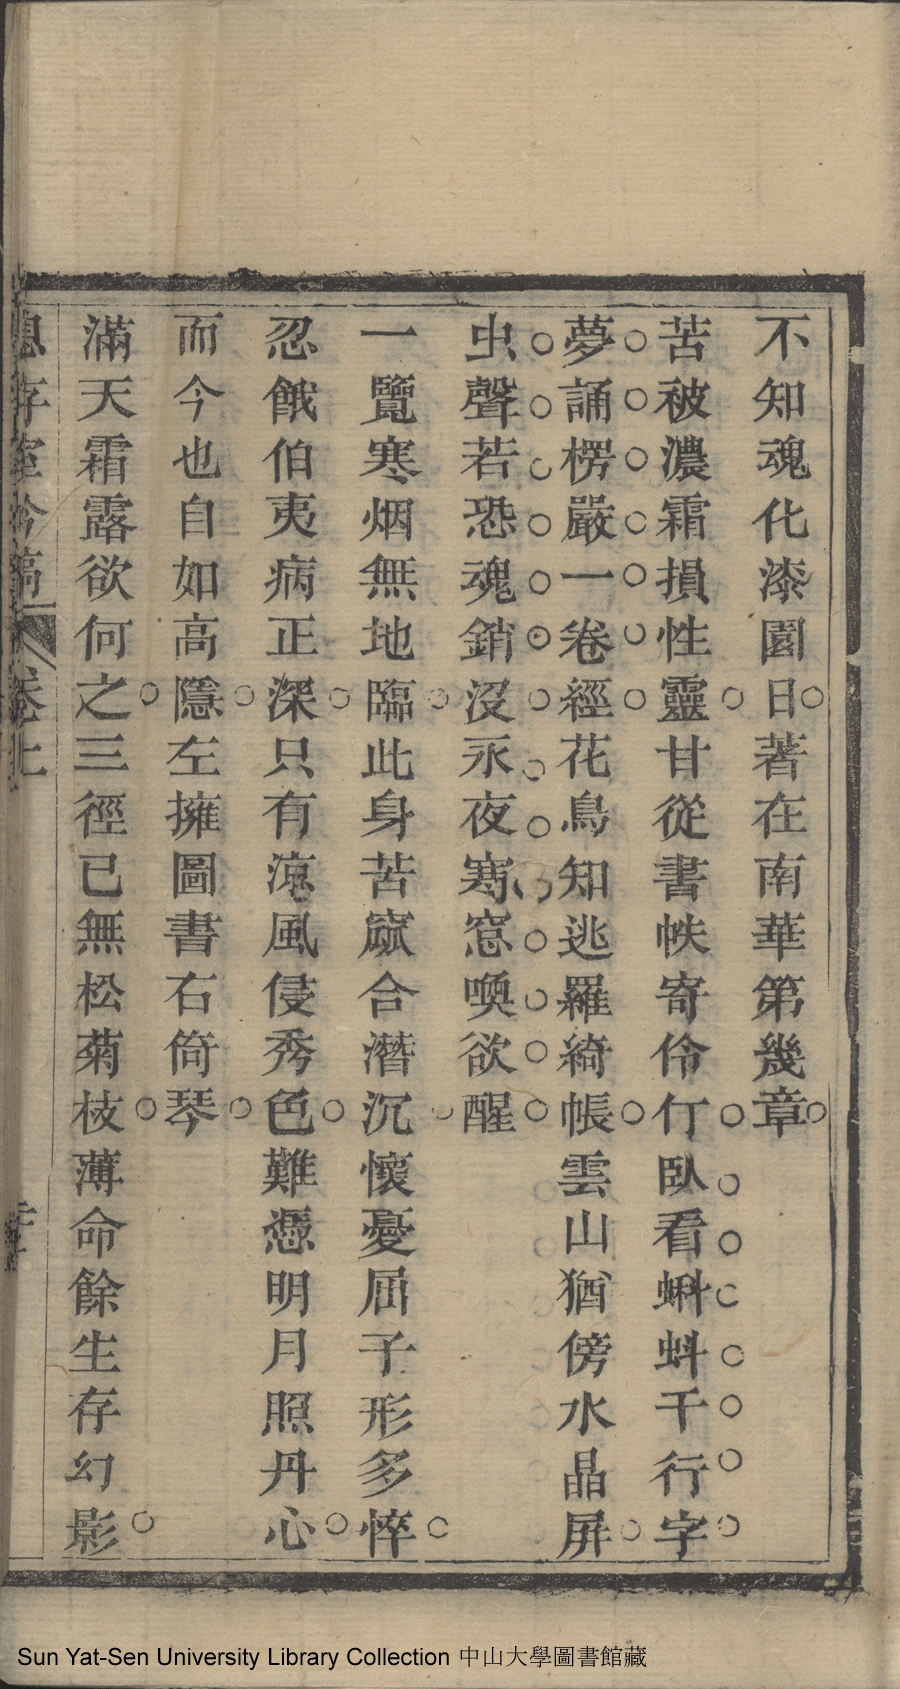 不知魂化漆園日著在南華第幾章
苦被濃霜損性靈甘從書帙寄伶仃臥看蝌蚪千行字
夢誦楞嚴一卷經花鳥知逃羅綺帳雲山猶傍水晶屏
虫聲若恐魂銷沒永夜寒窓喚欲醒
一覽寒烟無地臨此身苦窳合潛沉懷憂屈子形多悴
忍餓伯夷病正深只有涼風侵秀色難憑明月照丹心
而今也自如高隱左擁圖書右筒琴
滿天霜露欲何之三徑已無松菊枝薄命餘生存幻影
息存室吟稿 卷上
Sun Yat-Sen University Library Collection 中山大學圖書館藏